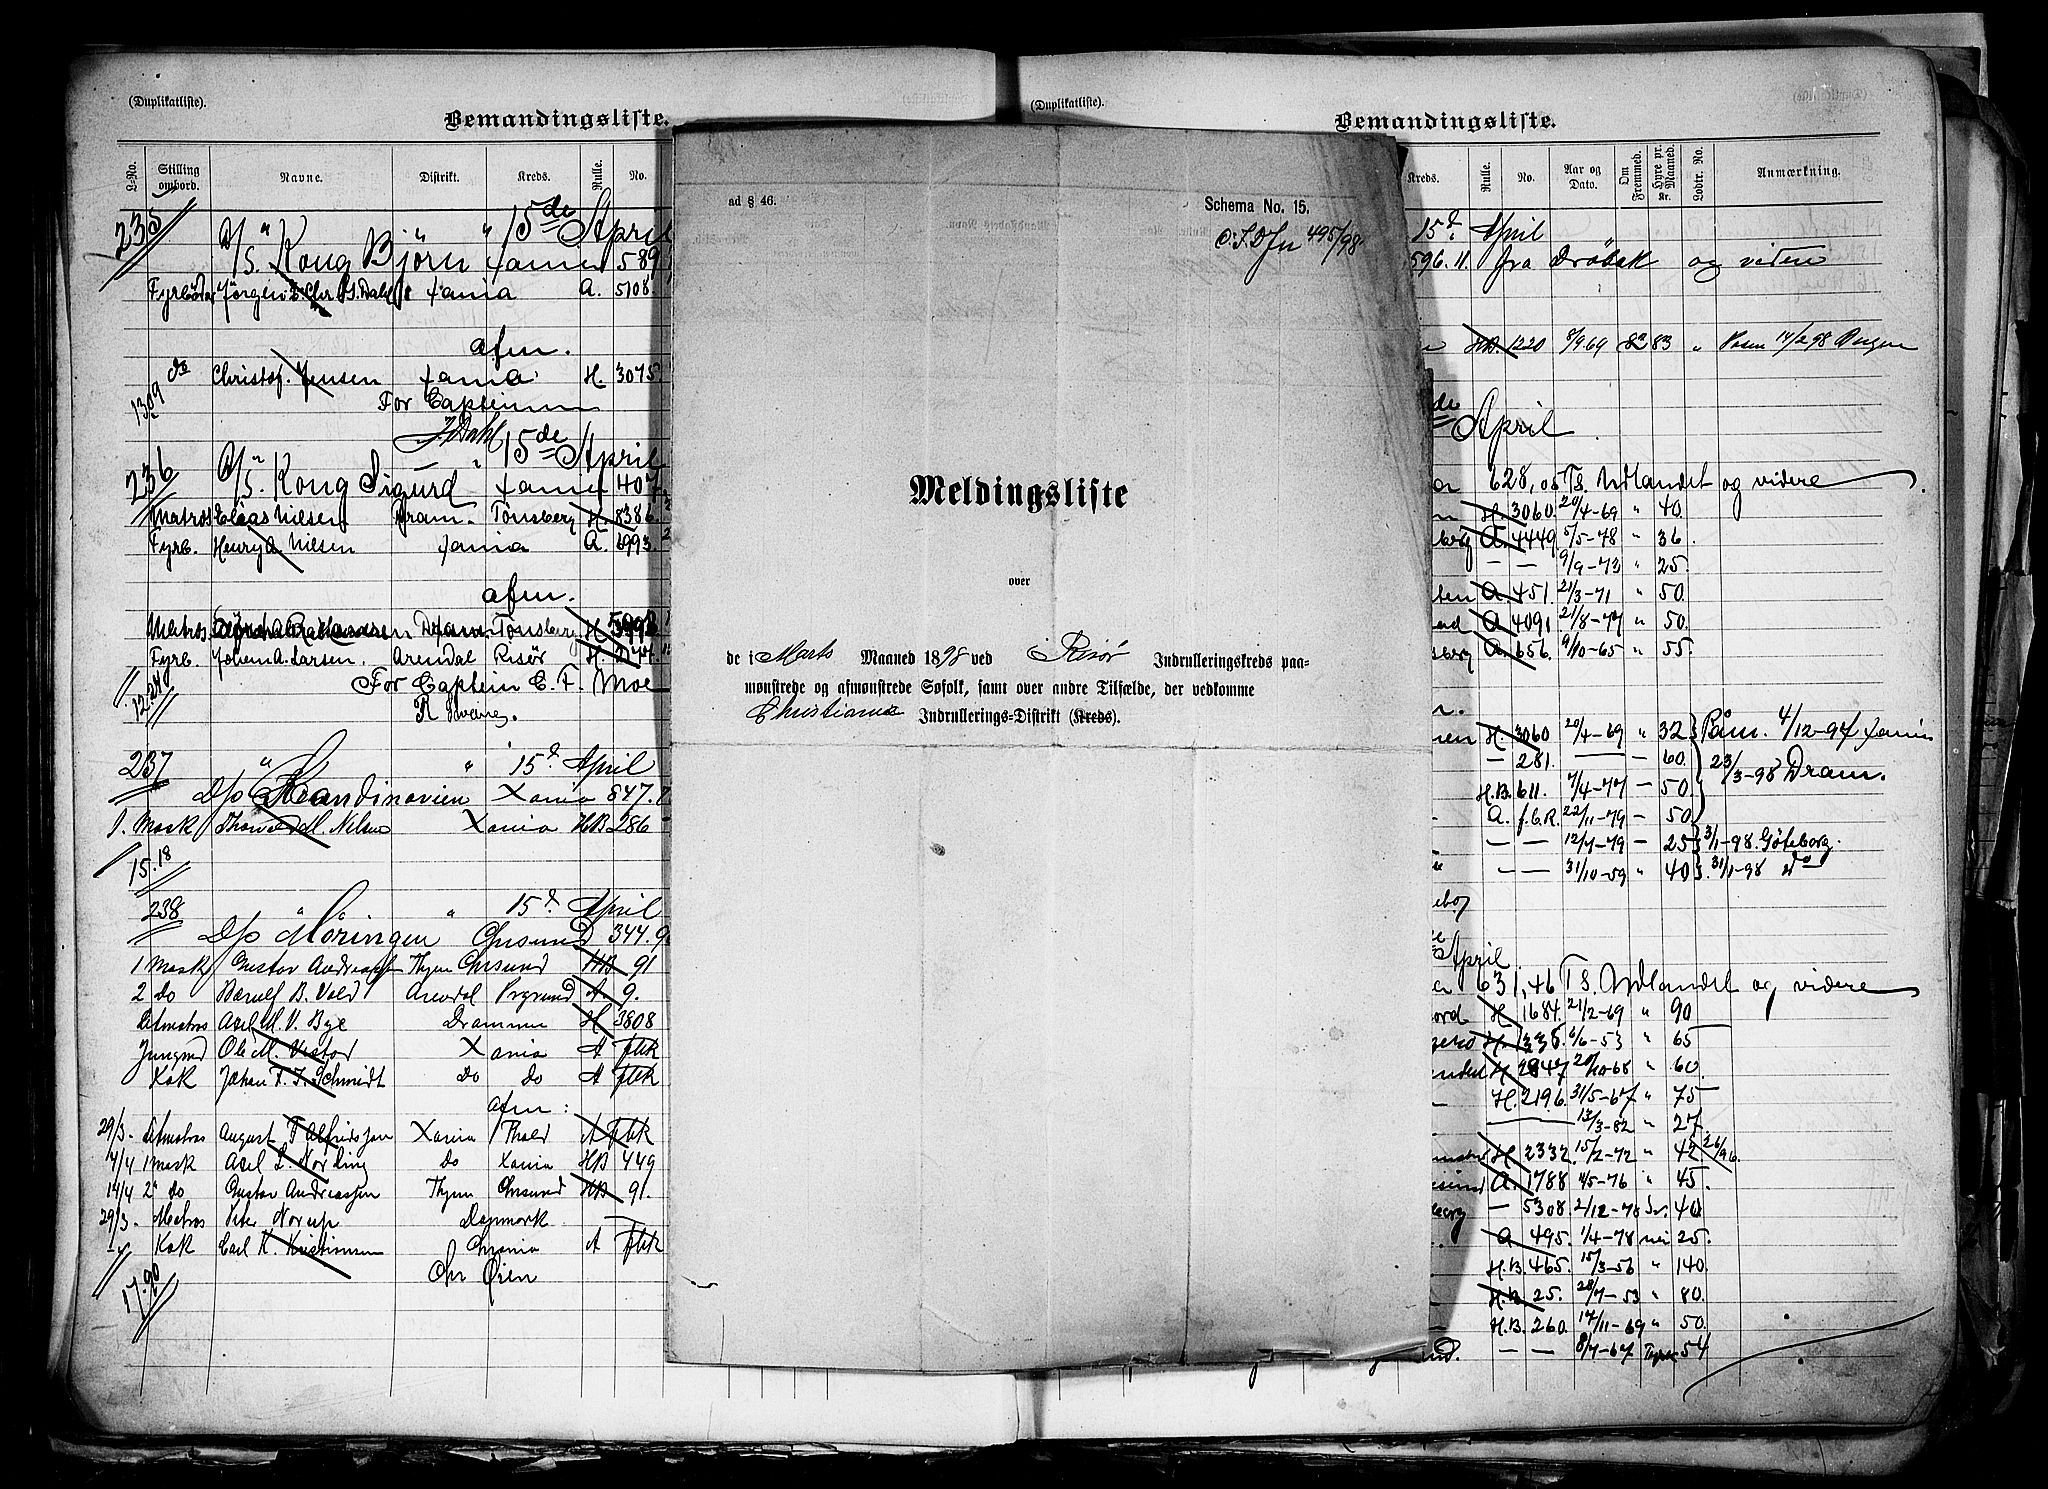 (Duplikatliste).
Bemandingsliste.
L-No. Stilling ombord. Navne. Distrikt. Kreds. Rulle. No.
235 " " " 15de April
D/S. Kong Björn Xania 589
Fyrböder Jörgen Dahl Xania A. 5108.
afm.
do Christof. Jensen Xania H. 3075.
1309
For Capteinen
J. Dahl
236 " — " 15de April
D/S. Kong Sigurd Xania 407
Matros Elias Nilsen Dram. Tönsberg H. 8386.
Fyrb. Henry A. Nilsen Xania A. 6993.
afm.
Matros Tönsberg H.
Fyrb. Johan A. Larsen. Arendal Risör H.
For Captein C. F. Moe
12.24
237 " " 15d. April
D/S Skandinavien Xania 847.
1. Mask Thorvald M. Nilsen Xania HB 286
15.18
238 " " 15d. April
D/S Möringen Chrsund 344.9
1 Mask Gustav Andreassen Thjem Chrsund HB 91
2 do B. Vold Arendal Prgrund A 9.
Letmatros Axel M. V. Bye Drammen H 3808
Jungmd Ole M. Xania A fbk
Kok Johan F. T. Schmidt Do Do A fbk
afm:
29/3. Letmatros August T Alfredsen Xania Thald A fbk
4/4 1 Mask Axel L. Nording do Xania HB 449
14/4 2" do Gustav Andreassen Thjem Chrsund HB 91.
29/3. Matros Peter Norup Danmark
Kok Carl K. Kristiansen Chrania A fbk
17.90
Chr Öien
ad § 46.
Schema No. 15.
495/98
Meldingsliste
over
de i Marts Maaned 1898 ved Risör Indrulleringskreds paa-
mønstrede og afmønstrede Søfolk, samt over andre Tilfælde, der vedkomme
Christiania Indrullerings-Distrikt (Kreds).
(Duplikatliste).
Bemandingsliste.
Kreds. Rulle. No. Aar og Dato. Om Fremmed. Hyre pr. Maaned. Kr. Lodtr. No. Anmærkning.
15d. April
596.11. fra Dröbak og videre
HB. 1220 8/9 69 83 "  14/2 98 Bergen
de April
628,05 Ts. Udlandet og videre
H. 3060 20/4-69 " 40.
A. 4449 5/5-78 " 36
— — 9/9-73 " 25.
A. 451. 21/3-71 " 50
A 4091 21/8-77 " 50.
A. 656. 9/10-65 " 55.
H. 3060 20/4-69 " 32 Påm. 4/12-97 Xania
— 281. — " 60. 23/3-98 Dram.
H.B. 611. 7/4-77 — 50.
A. f.b.R. 22/11-79 — 50
— — 12/7-79 — 25 3/1-98 Göteborg.
— — 31/10-59 " 40 31/1-98 do
April
631,46 Ts. Udlandet og videre
H 1684. 21/2-69 " 90
H. 335. 6/6-53 " 65
H 2847 20/10-68 " 60.
H. 2196. 31/5-67 " 75
— 13/3-82 " 27.
H 2332. 15/2-72 " 42 26/96.
A. 1788 4/5-76 " 45.
— 5308 2/12-78 40
A 495. 1/4-78 nei 25.
H.B. 465. 15/3-56 " 140.
H.B. 25. 28/7-53 " 80.
H.B. 260. 17/11-69 " 50.
— — 8/7-67 54